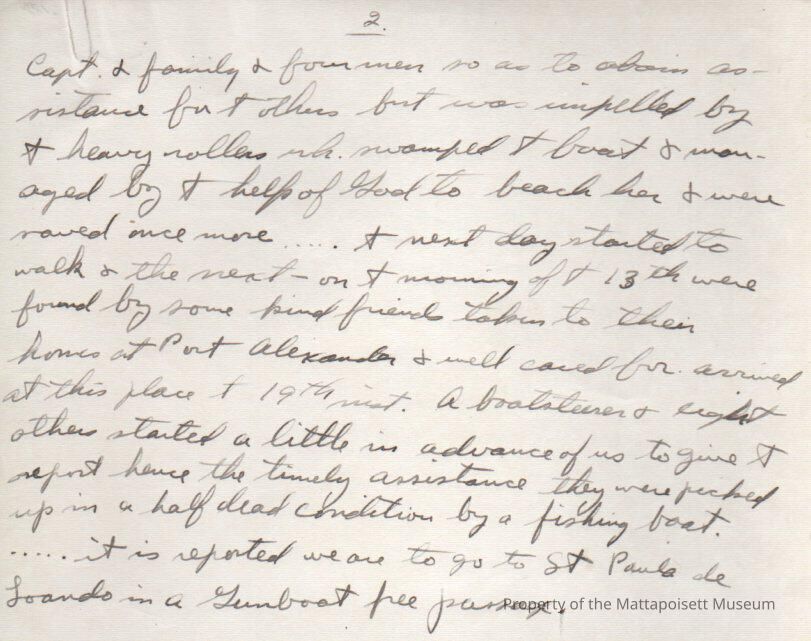 2.
Capt. & family & four men so as to obain as-
sistance for t others but was impelled by
t heavy rollers wh. swamped t boat & man-
aged by t help of God to beach her & were
saved once more ..... t next day started to
walk & the next - on t morning of t 13th were
found by some kind friends taken to their
homes at Port Alexander & well cared for. arrived
at this place t 19th inst. A boatsteerer & eight
others started a little in advance of us to give t
report hence the timely assistance they were picked
up in a half dead condition by a fishing boat.
..... it is reported we are to go to St Paula de
Loando in a Gunboat free
Property of the Mattapoisett Museum